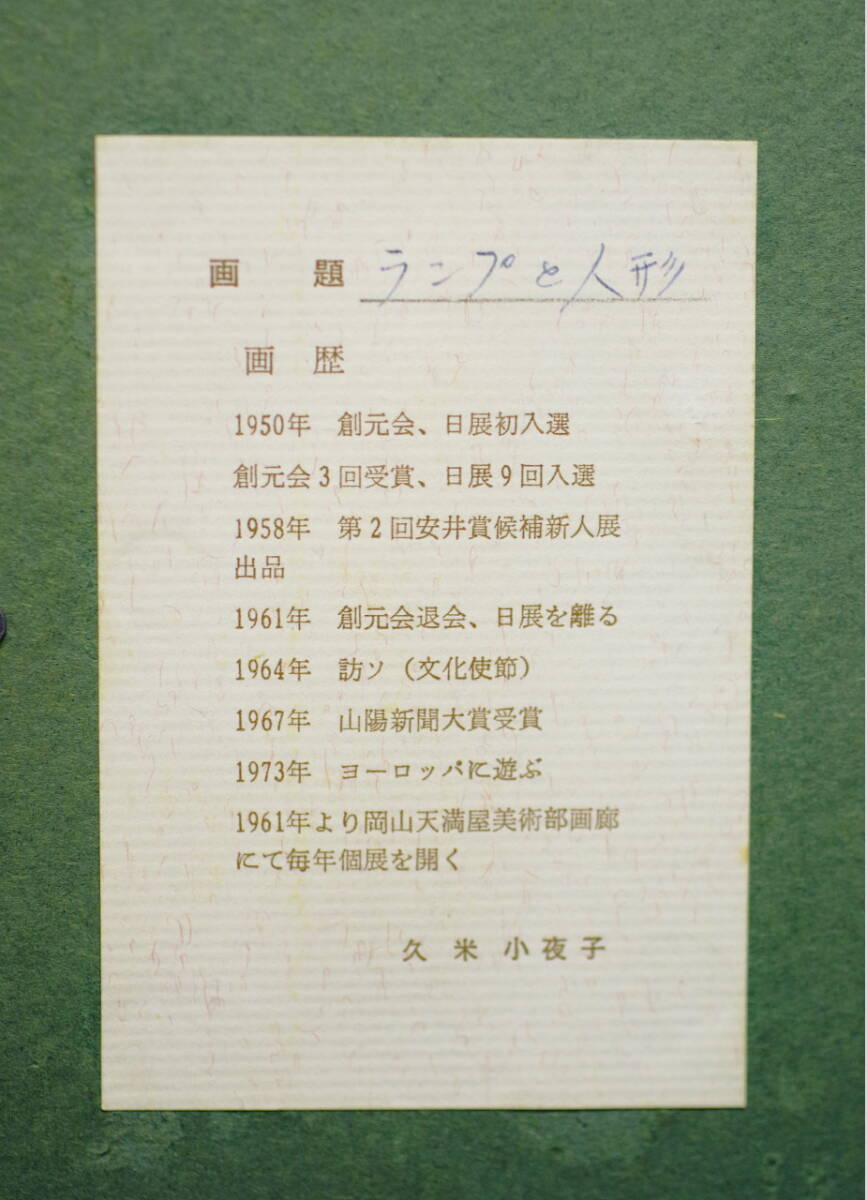 画　題 ランプと人形
画　歴
1950年　創元会、日展初入選
創元会3回受賞、日展9回入選
1958年　第2回安井賞候補新人展
出品
1961年　創元会退会、日展を離る
1964年　訪ソ（文化使節）
1967年　山陽新聞大賞受賞
1973年　ヨーロッパに遊ぶ
1961年より岡山天満屋美術部画廊
にて毎年個展を開く
久米　小夜子